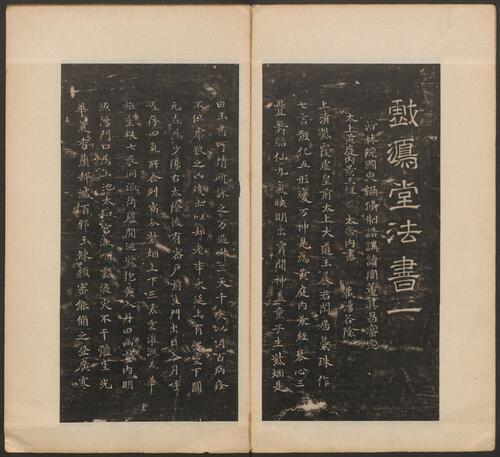 戯鴻堂法書一
翰林院國史編修制誥講讀官董其昌審定
太上黃庭內景經 太帝內書 暘谷陰
上清紫霞虛皇前太上大道玉晨君閑居蘂珠作
七言散化五形變万神是為黃庭內景經琴心三
疊舞胎仙九氣映明出霄間神蓋童子生紫烟是
曰玉書可精研詠之万過昇三天千灾以消百病痊
不憚虎狼之凶殘亦以却老年永延上有魂靈下關
元左為少陽右太陰後有密戶前生門出日入月呼
吸存四氣所合列宿分紫烟上下三素雲灌溉五華
植靈根七液洞流衝廬間迴紫抱黃入丹田幽室內明
照陽門口為玉池太和宮漱咽靈液灾不干體生光
華氣香蘭却滅百邪玉煉顏審能脩之登廣寒